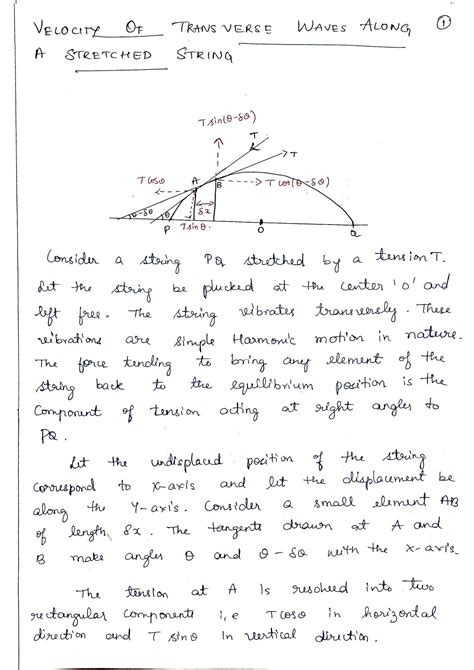 VELOCITY OF TRANSVERSE WAVES ALONG ①
A STRETCHED STRING
T sin(θ-δθ)
T
T
Tcosθ
A
B
T cos(θ-δθ)
θ-δθ
θ
δx
P
Tsinθ.
O
Q
Consider a string PQ stretched by a tension T.
Let the string be plucked at the center 'o' and
left free. The string vibrates transversely. These
vibrations are simple Harmonic motion in nature.
The force tending to bring any element of the
string back to the equilibrium position is the
Component of tension acting at right angles to
PQ.
Let the undisplaced position of the string
correspond to x-axis and let the displacement be
along the Y-axis. Consider a small element AB
of length δx. The tangents drawn at A and
B make angles θ and θ-δθ with the x-axis.
The tension at A is resolved into two
rectangular Components i,e Tcosθ in horizontal
direction and T sinθ In vertical direction.